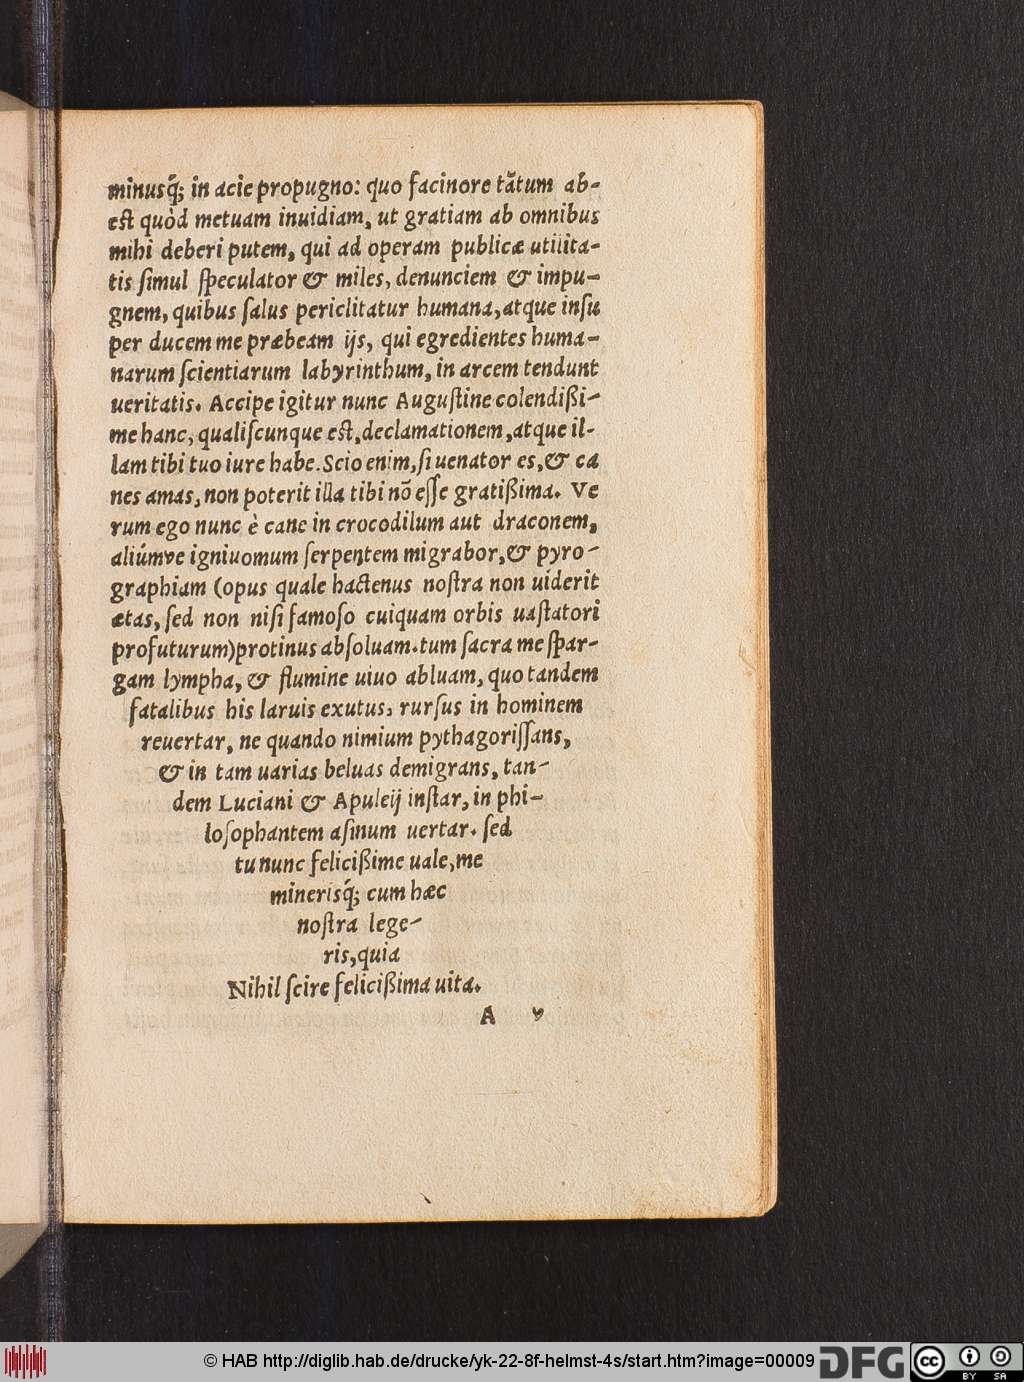 minusq́; in acie propugno: quo facinore tãtum ab-
est quòd metuam inuidiam, ut gratiam ab omnibus
mihi deberi putem, qui ad operam publicæ utilita-
tis ſimul ſpeculator & miles, denunciem & impu-
gnem, quibus ſalus periclitatur humana, atque inſu
per ducem me præbeam ijs, qui egredientes huma-
narum ſcientiarum labyrinthum, in arcem tendunt
ueritatis. Accipe igitur nunc Auguſtine colendißi-
me hanc, qualiſcunque eſt, declamationem, atque il-
lam tibi tuo iure habe. Scio enim, ſi uenator es, & ca
nes amas, non poterit illa tibi nõ eſſe gratißima. Ve
rum ego nunc è cane in crocodilum aut draconem,
aliúmve igniuomum ſerpentem migrabor, & pyro-
graphiam (opus quale hactenus noſtra non uiderit
ætas, ſed non niſi famoſo cuiquam orbis uaſtatori
profuturum) protinus abſoluam. tum ſacra me ſpar-
gam lympha, & flumine uiuo abluam, quo tandem
fatalibus his laruis exutus, rurſus in hominem
reuertar, ne quando nimium pythagoriſſans,
& in tam uarias beluas demigrans, tan-
dem Luciani & Apuleij inſtar, in phi-
loſophantem aſinum uertar. ſed
tu nunc felicißime uale, me
minerisq́; cum hæc
noſtra lege-
ris, quia
Nihil ſcire felicißima uita.
A v
© HAB http://diglib.hab.de/drucke/yk-22-8f-helmst-4s/start.htm?image=00009
DFG
cc BY SA